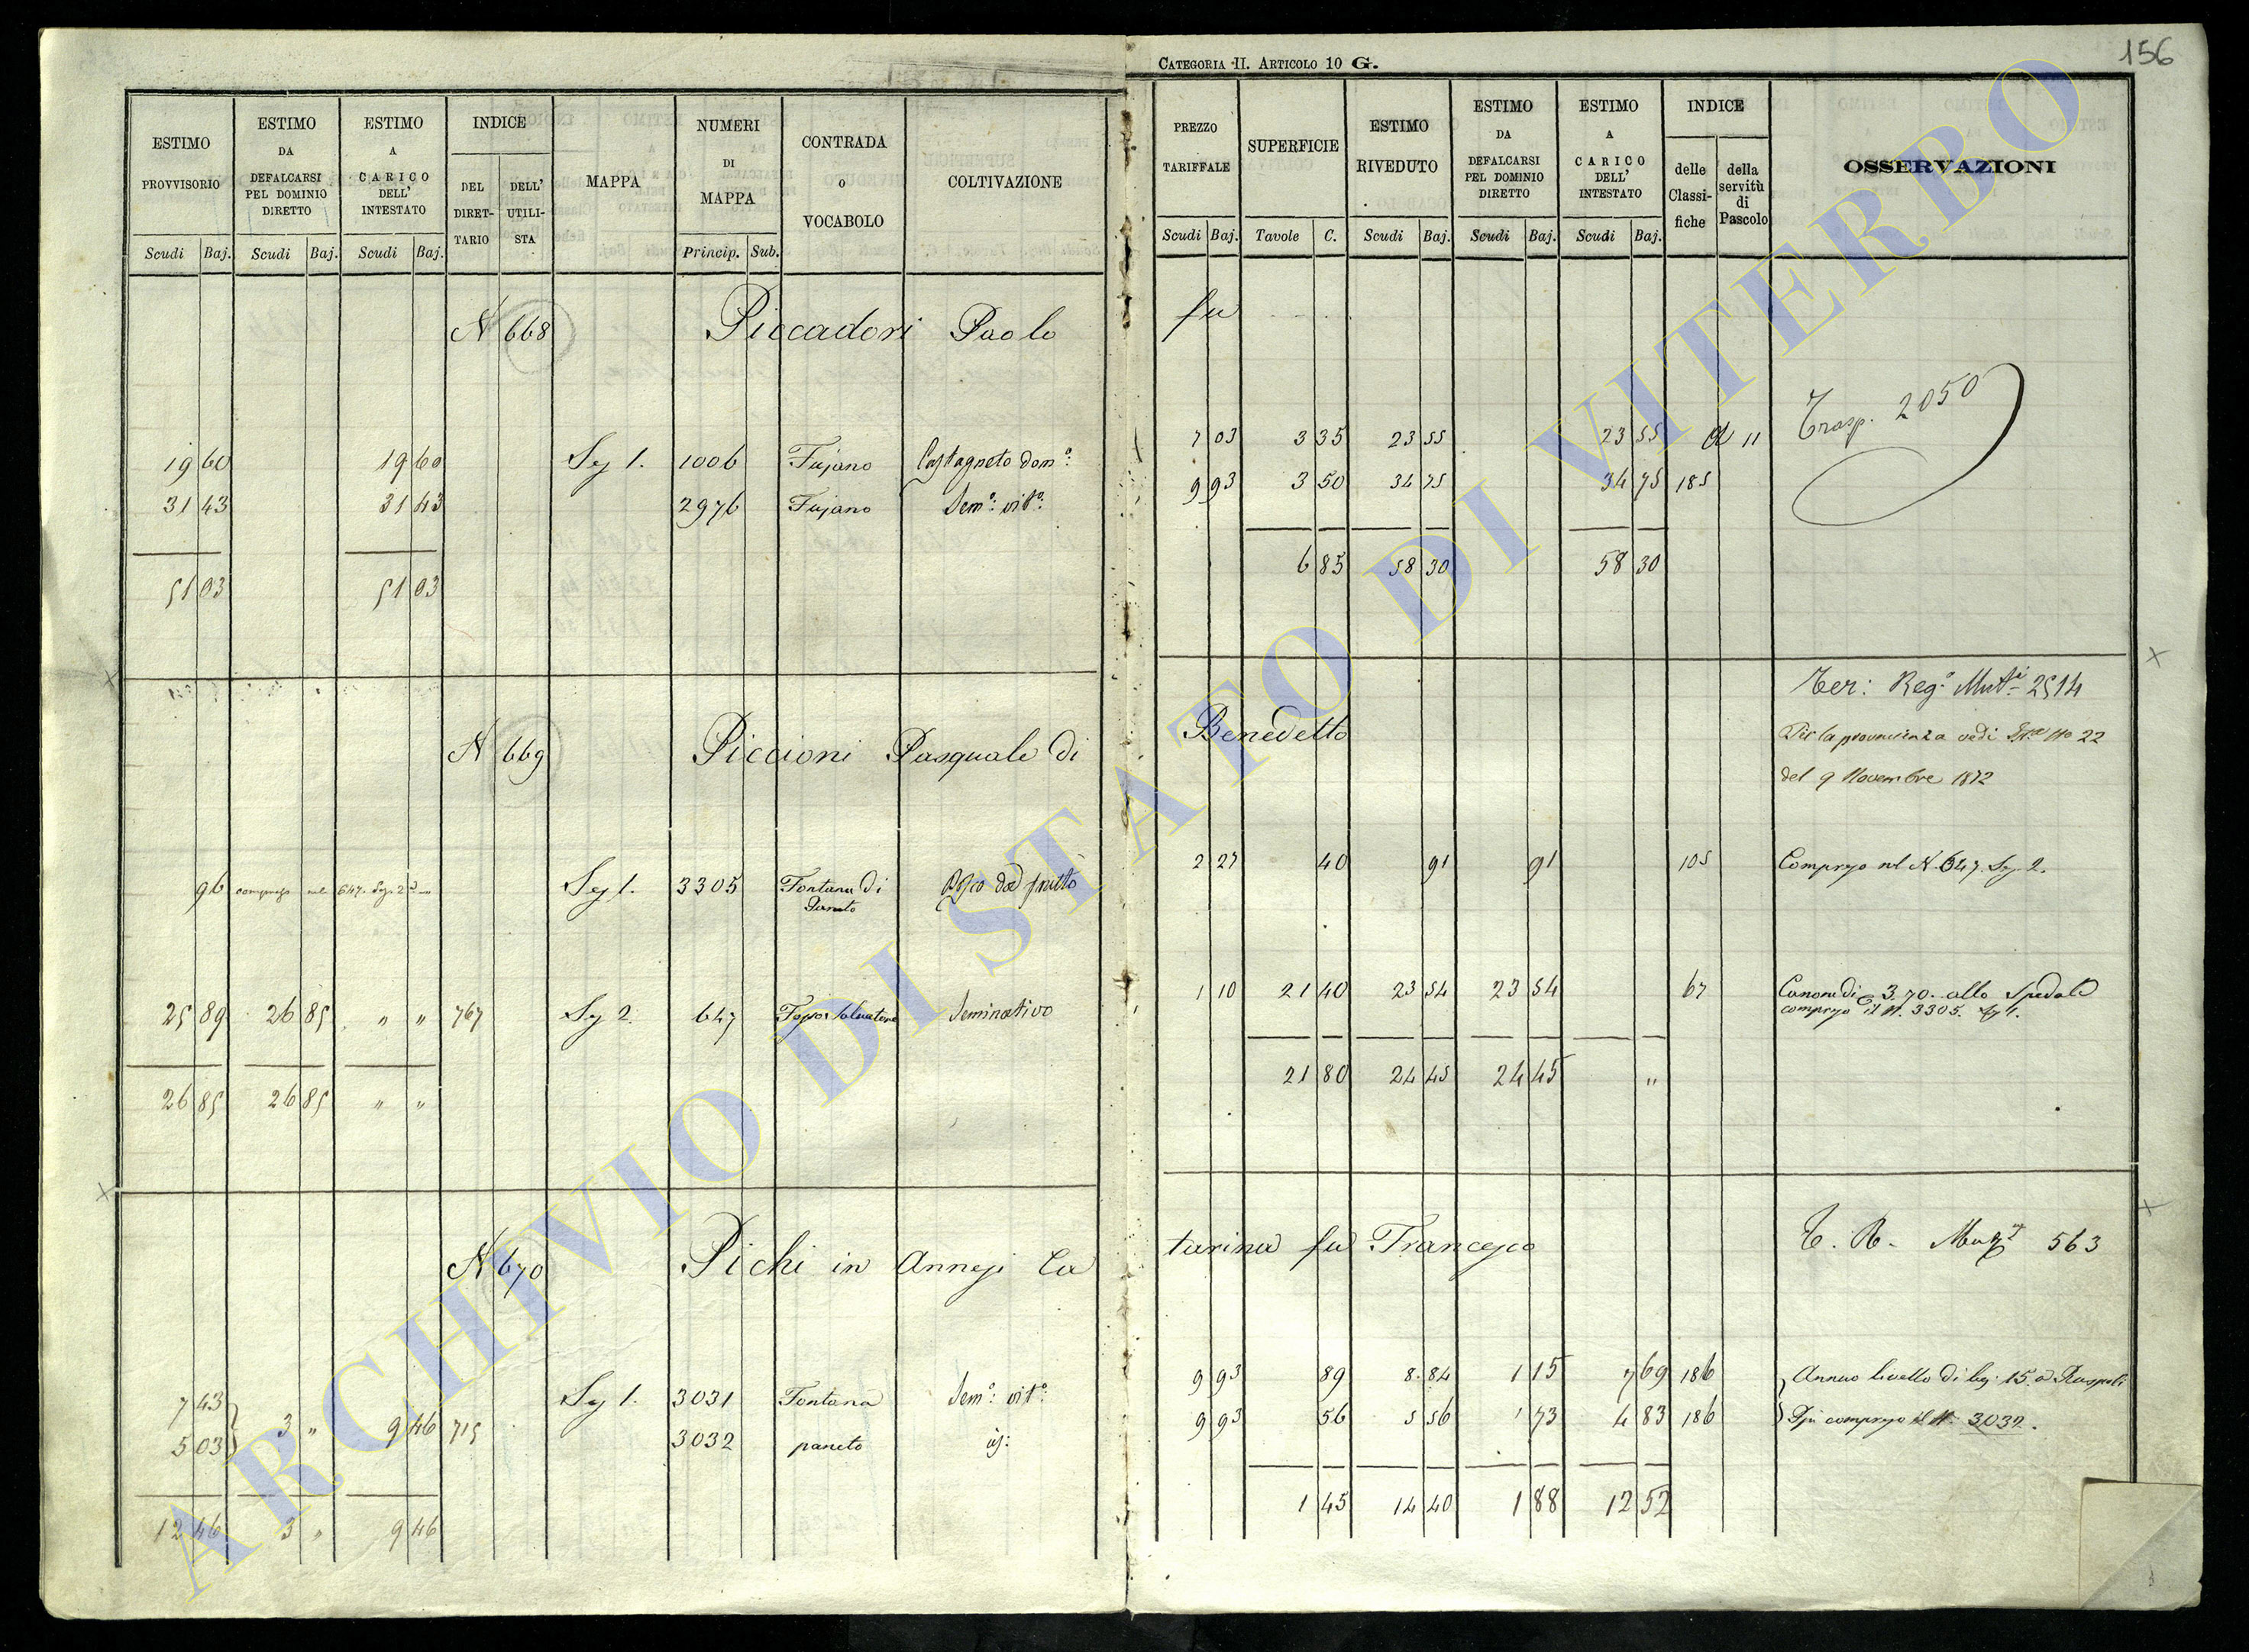 CATEGORIA II. ARTICOLO 10 G.
156
ESTIMO PROVVISORIO
ESTIMO DA DEFALCARSI PEL DOMINIO DIRETTO
ESTIMO A CARICO DELL' INTESTATO
INDICE
DEL DIRETTARIO
DELL' UTILISTA
MAPPA
NUMERI DI MAPPA
CONTRADA O VOCABOLO
COLTIVAZIONE
Scudi Baj. Scudi Baj. Scudi Baj. Princip. Sub.
PREZZO TARIFFALE
SUPERFICIE
ESTIMO RIVEDUTO
ESTIMO DA DEFALCARSI PEL DOMINIO DIRETTO
ESTIMO A CARICO DELL' INTESTATO
INDICE
delle Classifiche
della servitù di Pascolo
OSSERVAZIONI
Scudi Baj. Tavole C. Scudi Baj. Scudi Baj. Scudi Baj.
N 668 Piccadori Paolo fu
Trasp. 2050
19 60 19 60 Sez 1. 1006 Fujano Castagneto dom°: 7 03 3 35 23 55 23 55 11
31 43 31 43 2976 Fujano Sem°: vit°: 9 93 3 50 34 75 34 75 185
51 03 51 03 6 85 58 30 58 30
Ter: Reg° Mut 2514
N 669 Piccioni Pasquale di Benedetto
Per la provenienza vedi N° 22
del 9 Novembre 1872
96 compreso nel 647. Sez. 2 Sez 1. 3305 Fontana di Paneto Bosco da frutto 2 27 40 91 91 105 Compreso nel N. 647. Sez. 2.
25 89 26 85 " " 767 Sez 2. 647 Salvatore Seminativo 1 10 21 40 23 54 23 54 67 Canone di 3.70. allo Spedale
compreso il N. 3305. Sez 1.
26 85 26 85 " " 21 80 24 45 24 45 "
N 670 Pichi in Annesi Caturina fu Francesco
T. R. 563
7 43 Sez 1. 3031 Fontana Sem°: vit°: 9 93 89 8 84 1 15 7 69 186 Annuo livello di 15. a Ruspoli
5 03 3 " 9 46 715 3032 paneto 9 93 56 5 56 73 4 83 186 compreso il N. 3032.
12 46 3 " 9 46 1 45 14 40 1 88 12 52
ARCHIVIO DI STATO DI VITERBO